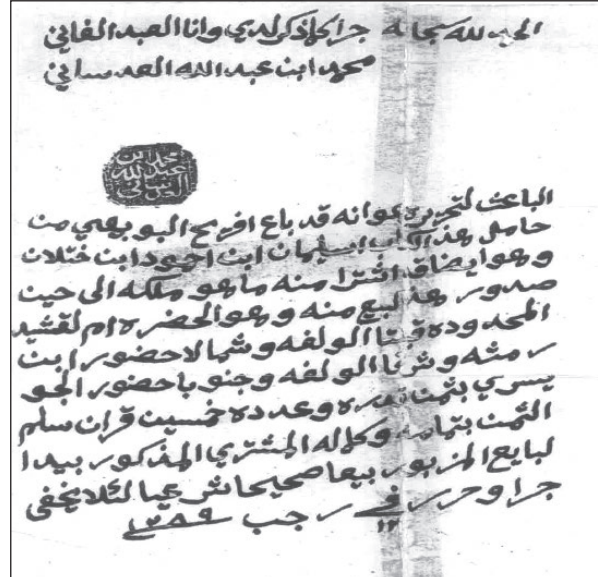 الحمد لله سبحانه جرا كما ذكر لدي وانا العبد الفاني
محمد ابن عبد الله العدساني
محمد ابن
عبد الله
العدساني
الباعث لتحريره هو انه قد باع افريح البو بعي من
حامل هذا الكتاب اسليمان ابن احمود ابن ختلان
وهو ايضا قد اشترا منه ما هو ملكه الى حين
صدور هذ لبيع منه وهو الحضره ام لقشيد
المحدوده قبلتا الولفه وشمالا حضور ابن
رمثه وشرقا الولفه وجنوبا حضور الجو
يسري بثمن قدره وعدده خمسين قران سلم
الثمن بتمامه وكماله المشتري المذكور بيد ا
لبايع المزبور بيعا صحيحا شرعيا لئلا يخفى
جرا وحرر في ١٢ رجب ١٣٨٩